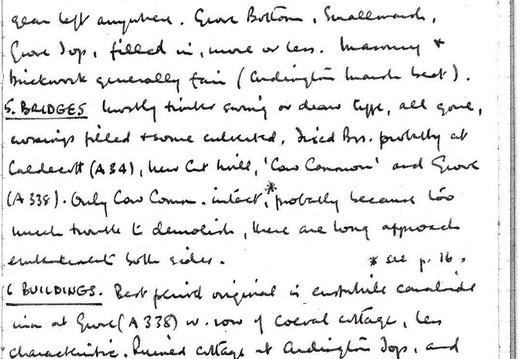 gear left anywhere. Grove Bottom, Smallmarsh,
Grove Top, filled in, more or less. Masonry &
brickwork generally fair (Ardington Marsh best).
5. BRIDGES Mostly timber swing or draw type, all gone,
crossings filled & some culverted. Fixed Brs. probably at
Caldecott (A34), New Cut Mill, 'Cow Common' and Grove
(A338). Only Cow Comm. intact,* probably because too
much trouble to demolish, there are long approach
embankments both sides. * see p. 16.
6 BUILDINGS. Best period original is erstwhile canalside
inn at Grove (A338) w. row of coeval cottage, less
characteristic. Ruined cottage at Ardington Top, and